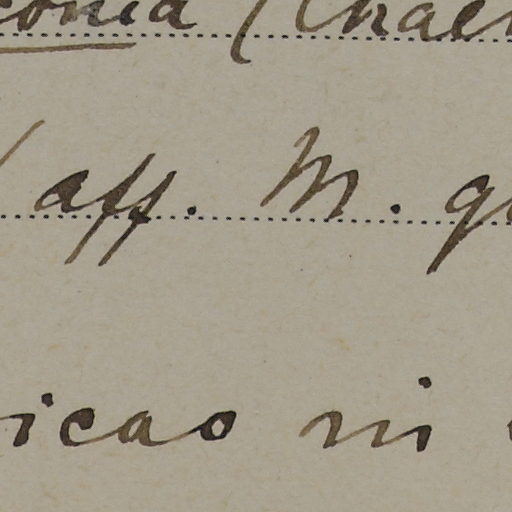 conia (Chae
aff. M. g
icao ni